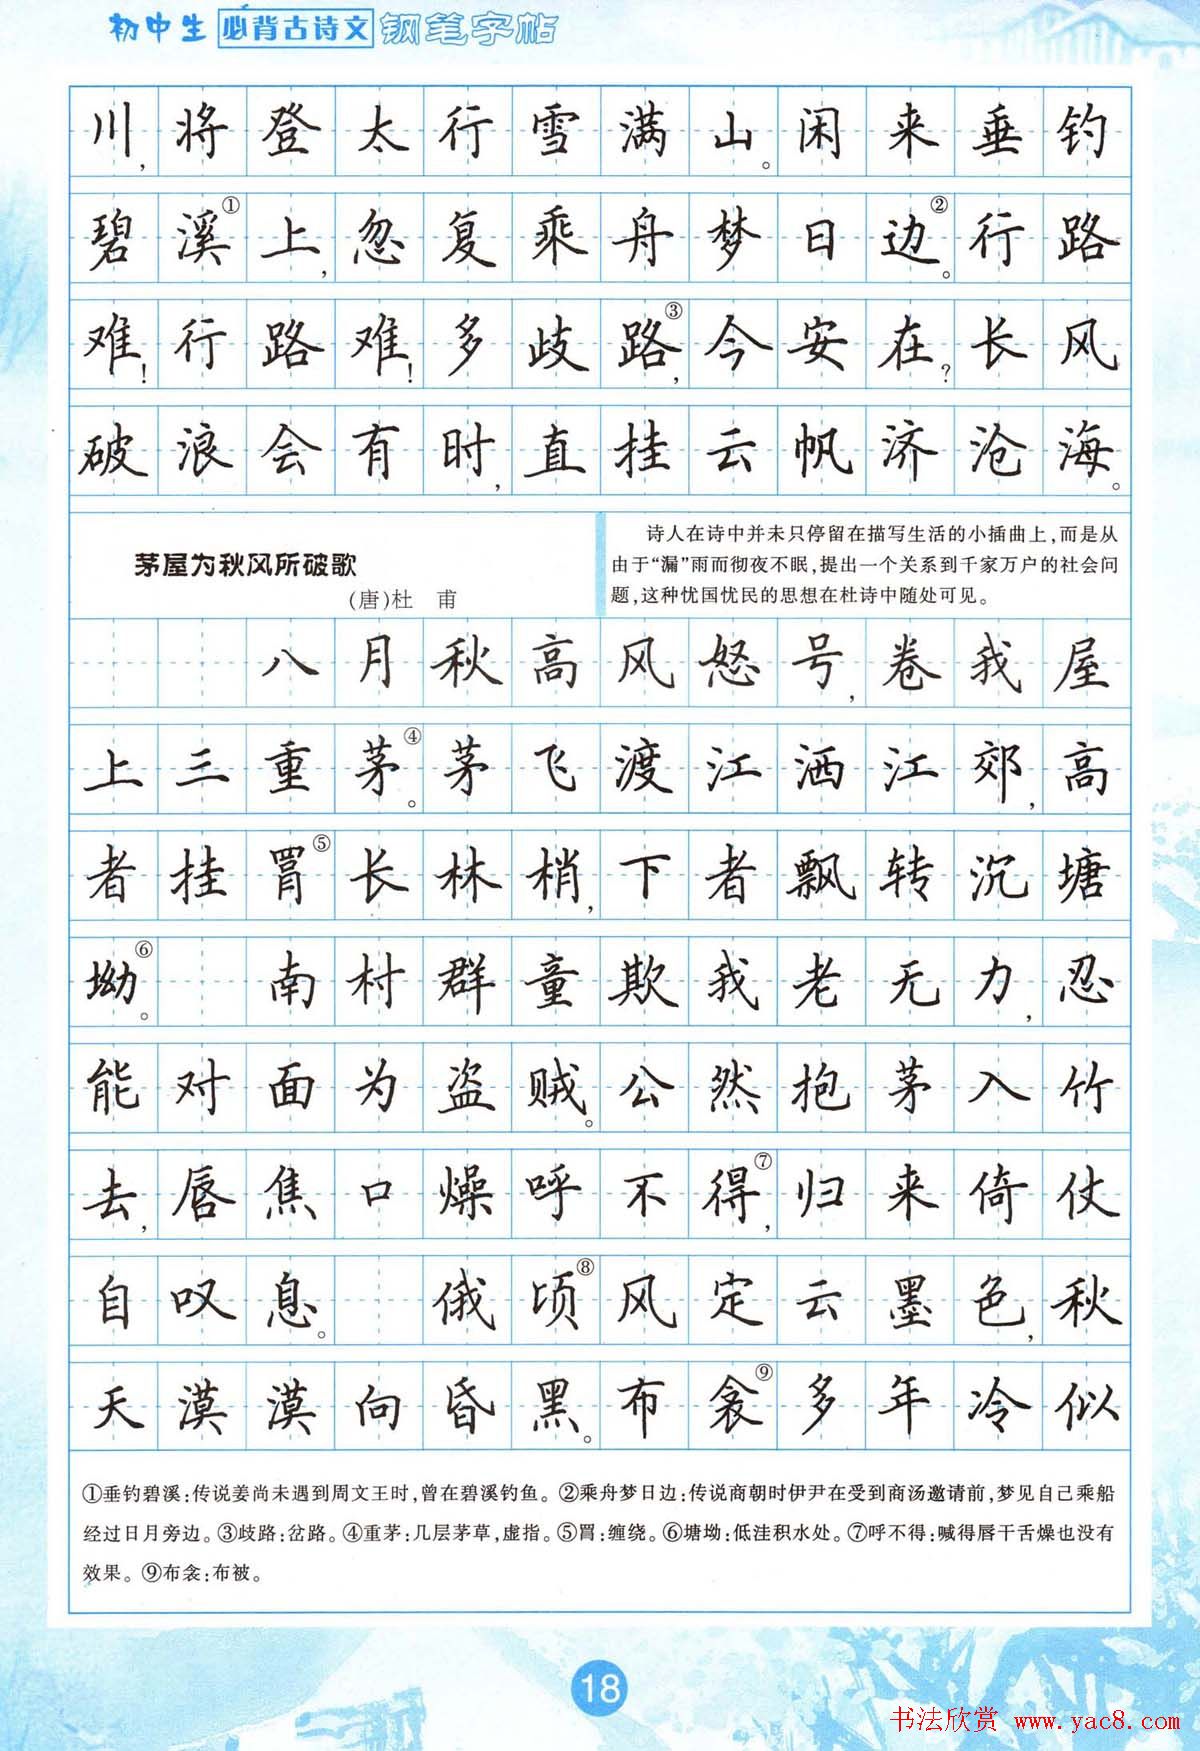 初中生必背古诗文钢笔字帖
川,将登太行雪满山。闲来垂钓
碧溪①上,忽复乘舟梦日边②。行路
难!行路难!多歧路③,今安在?长风
破浪会有时,直挂云帆济沧海。
茅屋为秋风所破歌
(唐)杜 甫
诗人在诗中并未只停留在描写生活的小插曲上,而是从
由于“漏”雨而彻夜不眠,提出一个关系到千家万户的社会问
题,这种忧国忧民的思想在杜诗中随处可见。
八月秋高风怒号,卷我屋
上三重茅④。茅飞渡江洒江郊,高
者挂罥⑤长林梢,下者飘转沉塘
坳⑥。 南村群童欺我老无力,忍
能对面为盗贼。公然抱茅入竹
去,唇焦口燥呼不得⑦,归来倚仗
自叹息。 俄顷⑧风定云墨色,秋
天漠漠向昏黑。布衾⑨多年冷似
①垂钓碧溪:传说姜尚未遇到周文王时,曾在碧溪钓鱼。②乘舟梦日边:传说商朝时伊尹在受到商汤邀请前,梦见自己乘船
经过日月旁边。③歧路:岔路。④重茅:几层茅草,虚指。⑤罥:缠绕。⑥塘坳:低洼积水处。⑦呼不得:喊得唇干舌燥也没有
效果。⑨布衾:布被。
18
书法欣赏 www.yac8.com